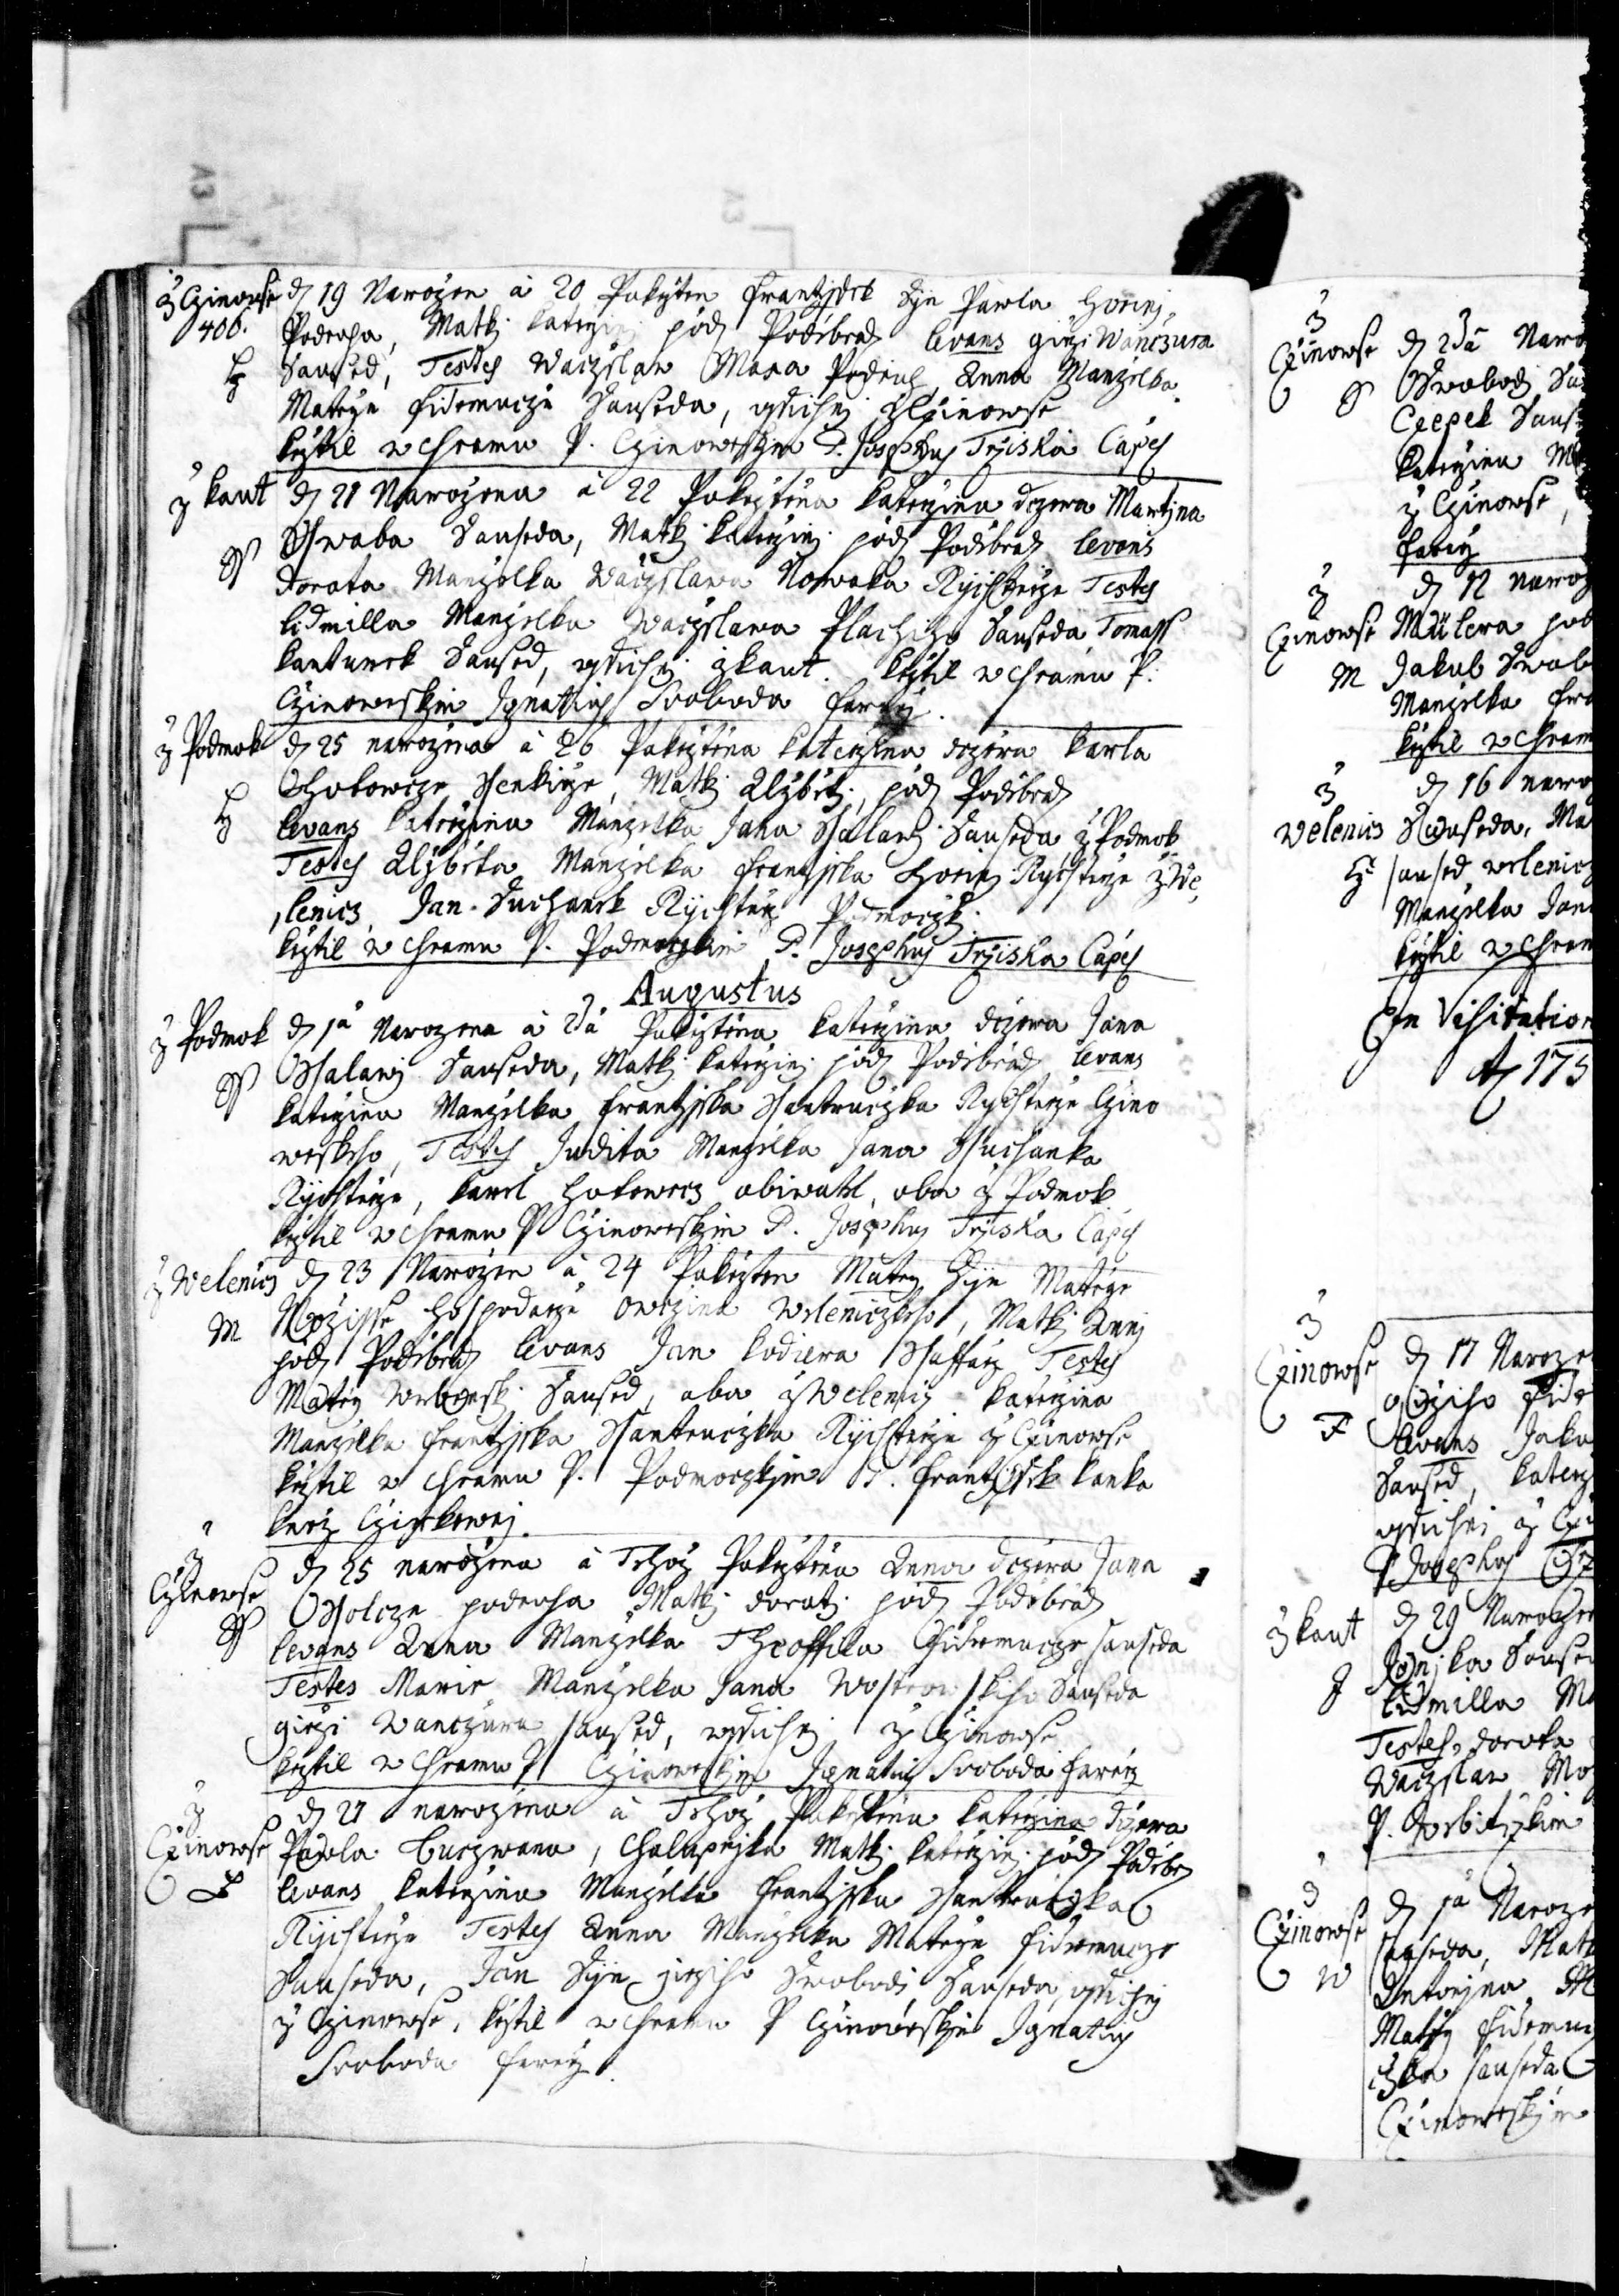 z Czinowse d 19 Narozen à 20 Pokrzten Frantzissek Syn Pawla Horini
406. Podruha, Matki Katerzini pod Podiebrad Levans girzi Wanczura
H Saused, Testes Waczslaw Mara Podruh, Anna Manzelka
Mategie Fidrmucze Sauseda, wssichni z Czinowse
krztil w chramu P. Czinoweskim P. Josephus Trziska Capel
z Kaut d 21 Narozena à 22 Pokrztena Katerzina dczera Martina
S Sswaba Sauseda, Matki Katerzini pod Podiebrad Levans
Dorota Manzelka Waczslawa Nowaka Rychtarze Testes
Lidmilla Manzelka Waczslawa Plachiho Sauseda Tomass
Kautunek Saused, wssichni z Kaut. krztil w chramu P.
Czinoweskim Ignatius Svoboda Fararz.
z Podmok d 25 narozena à 26 Pokrztena Katerzina dczera Karla
Hotowcze Ssenkirze, Matki Alzbieti, pod Podiebrad
H Levans Katerzina Manzelka Jana Ssalari Sauseda z Podmok
Testes Alzbieta Manzelka Frantzisska Horini Rychtarze z We,
lenicz, Jan Suchanek Rychtarz Podmoczki.
krztil w chramu P. Podmoczkim P. Josephus Trziska Capel
Augustus
z Podmok d 1a Narozena à 2da Pokrztena Katerzina dczera Jana
S Ssalari Sauseda, Matki Katerzini pod Podiebrad Levans
Katerzina Manzelka Frantzisska Ssantruczka Rychtarze Czino
weskeho, Testes Judita Manzelka Jana Suchanka
Rychtarze, Karel Hotowecz obiwatel, oba z Podmok
krztil w chramu P Czinoweskim P. Josephus Trziska Capel
z Welenicz d 23 Narozen à 24 Pokrzten Matieg Syn Mategie
M Hospodarze Owczina Weleniczkeho, Matki Anni
pod Podiebrad Levans Jan Kodiera Ssaffarz Testes
Matieg Saused, oba z Welenicz Katerzina
Manzelka Frantzisska Ssantruczka Rychtarze z Czinowse
krztil w chramu P. Podmoczkim P. Frantzissek Kanka
knez
z d 25 narozena à Tehoz Pokrztena Anna dczera Jana
Czinowse Ssolcze podruha Matki Doroti pod Podiebrad
S Levans Anna Manzelka Theoffila Fidrmucze sauseda
Testes Marie Manzelka Jana Wostrowskiho Sauseda
girzi Wanczura saused, wssichni z Czinowse
krztil w chramu P Czinoweskim Ignatius Svoboda Fararz
z d 27 narozena à Tehoz Pokrztena Katerzina dczera
Czinowse Pawla, Chalupnika Matki Katerzini pod Podiebr
Levans Katerzina Manzelka Frantzisska Ssantruczka
Rychtarze Testes Anna Manzelka Mategie Fidrmucze
Sauseda, Jan Syn girziho Swobodi Sauseda, wssichni
z Czinowse, krztil w chramu P Czinoweskim Ignatius
Svoboda Fararz.
z d 2da Naro
Czinowse Swobodi Sau
S Czepek Saus
Katerzina M
z Czinowse,
Fararz
z d 12 Naroz
Czinowse Müllera pod
M Jakub Swob
Manzelka Fra
krztil w chram
z d 16 naro
Welenicz Sauseda, Ma
saused Welenicz
Manzelka Jan
krztil w chram
In Visitation
175
z
Czinowse d 17 Naroze
F girziho Fidr
Levans Jaku
Saused, Katerz
wssichni z Czi
P Josephus
z Kaut d 29 Narozen
J Sause
Lidmilla Ma
Testes, Dorota
Waczslaw
P.
z d 1a Naroze
Czinowse sauseda, Matk
W Antonina M
Matieg Fidrmu
czka sauseda
Czinoweskim